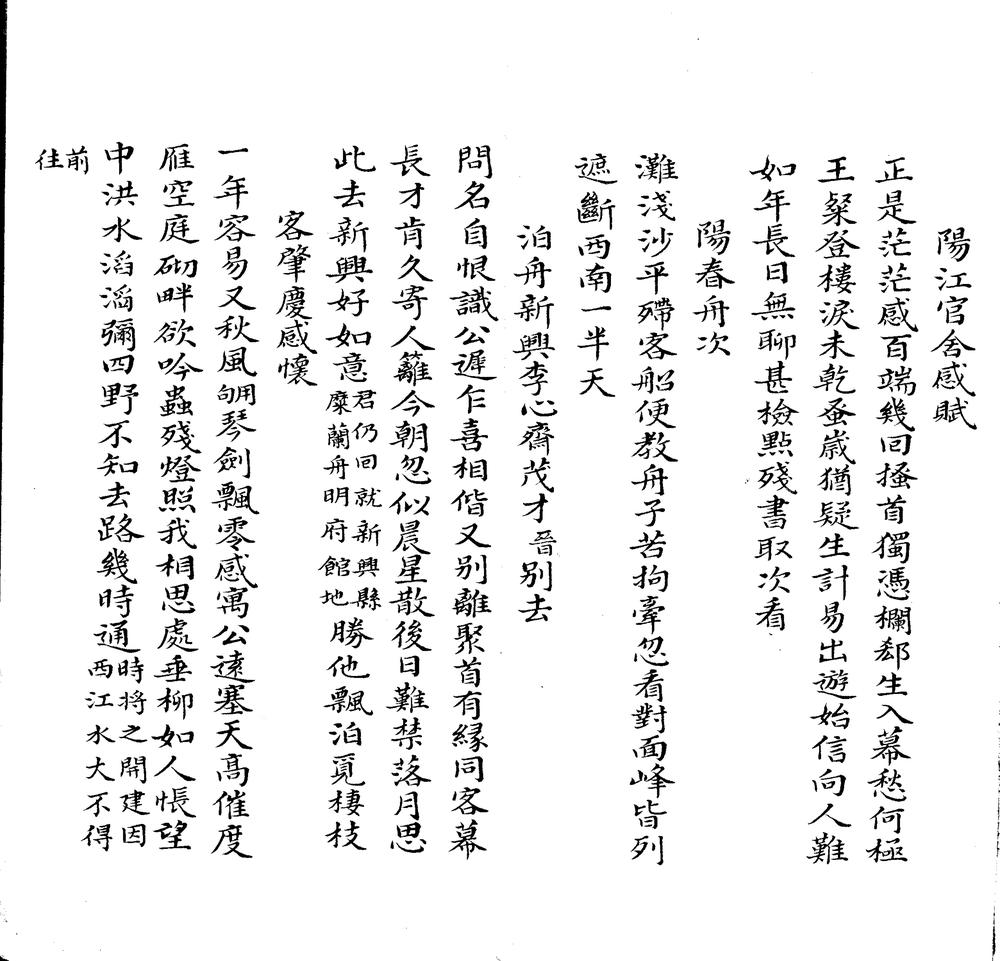 陽江官舍感賦
正是茫茫感百端幾回搔首獨憑欄郄生入幕愁何極
王粲登樓淚未乾蚤歲猶疑生計易出遊始信向人難
如年長日無聊甚檢點殘書取次看
陽春舟次
灘淺沙平殢客船便教舟子苦拘牽忽看對面峰皆列
遮斷西南一半天
泊舟新興李心齋茂才晉别去
問名自恨識公遲乍喜相偕又别離聚首有緣同客幕
長才肯久寄人籬今朝忽似晨星散後日難禁落月思
此去新興好如意君仍回就新興縣糜蘭舟明府館地勝他飄泊覓棲枝
客肇慶感懷
一年容易又秋風琴劍飄零感寓公遠塞天高催度
雁空庭砌畔欲吟蟲殘燈照我相思處垂柳如人悵望
中洪水滔滔彌四野不知去路幾時通時將之開建因西江水大不得
前往